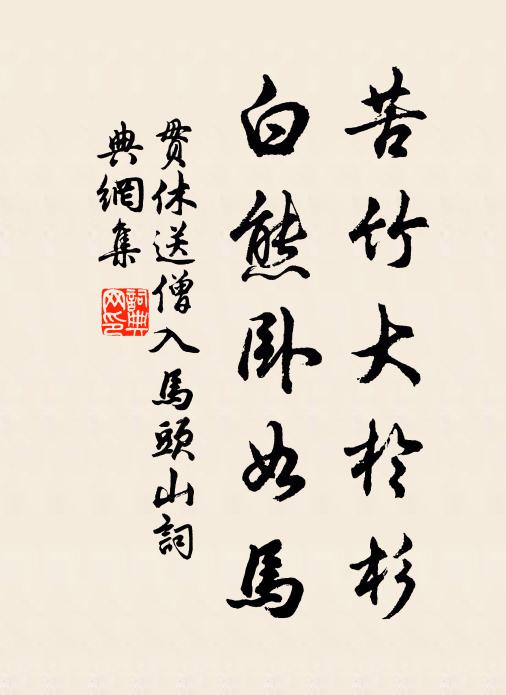 苦竹大於杉
白熊臥如馬
貫休送僧入馬頭山詞
典網集
詞典
网印